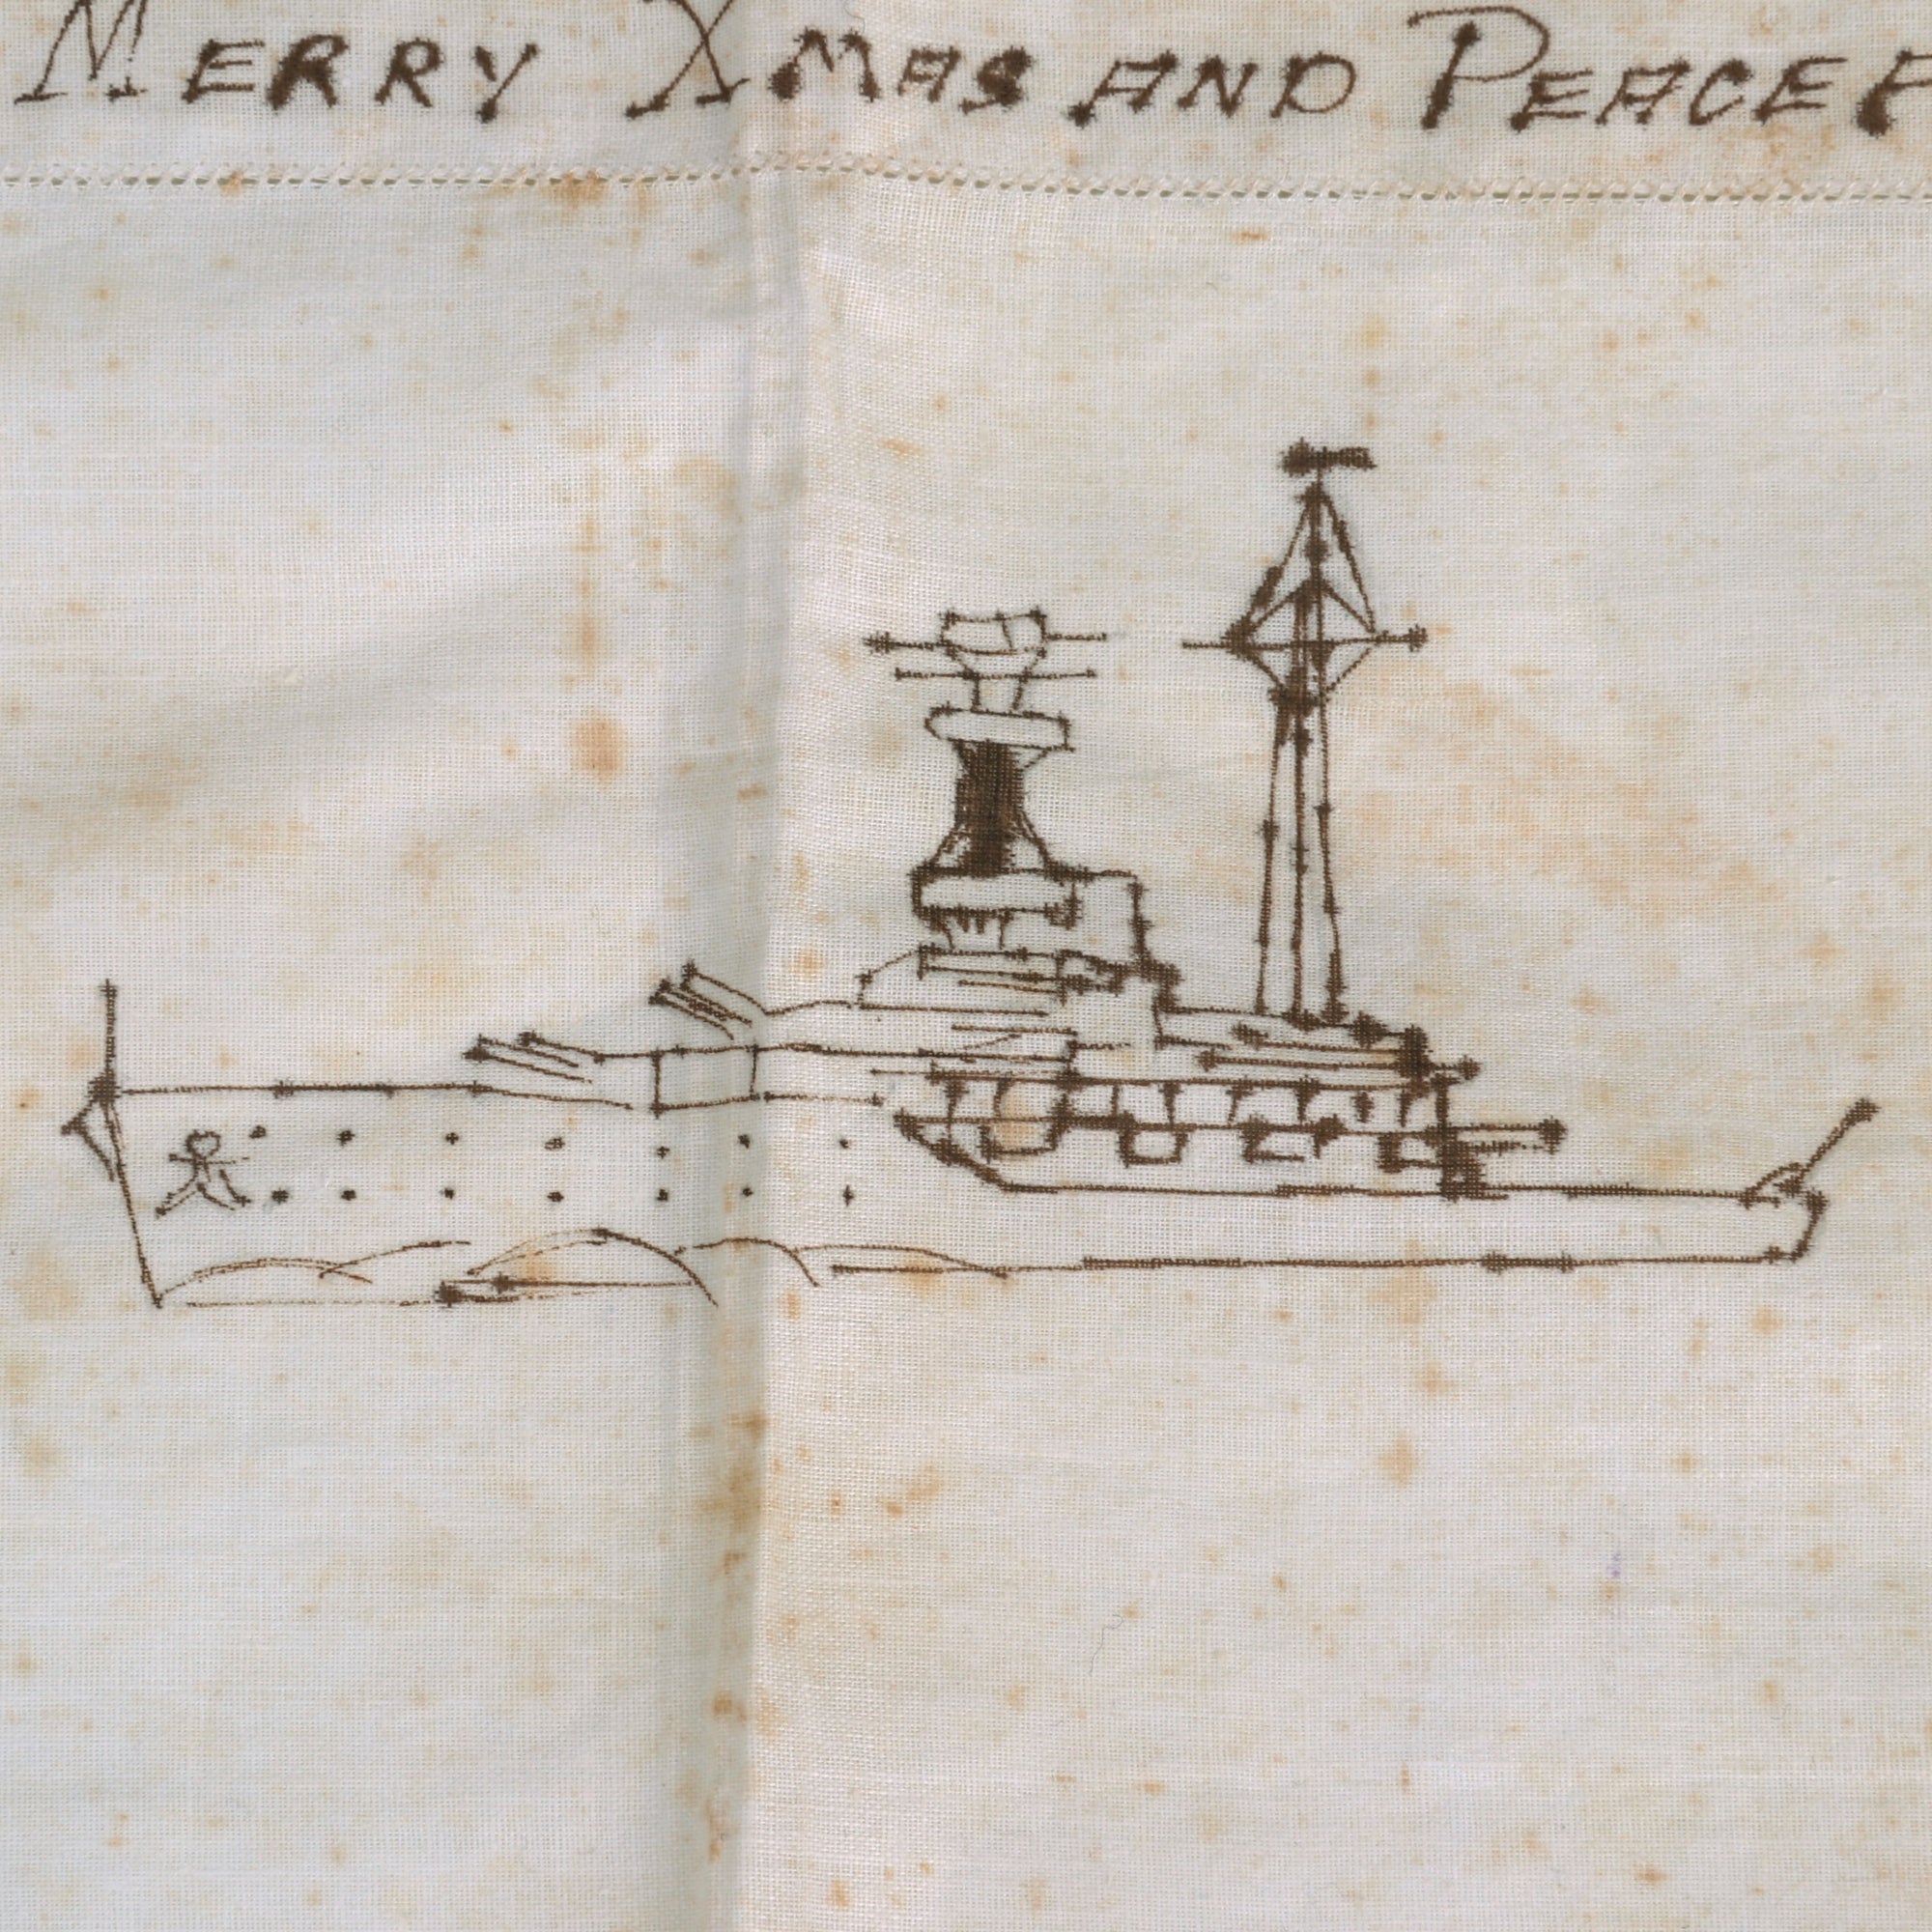 MERRY XMAS AND PEACEF